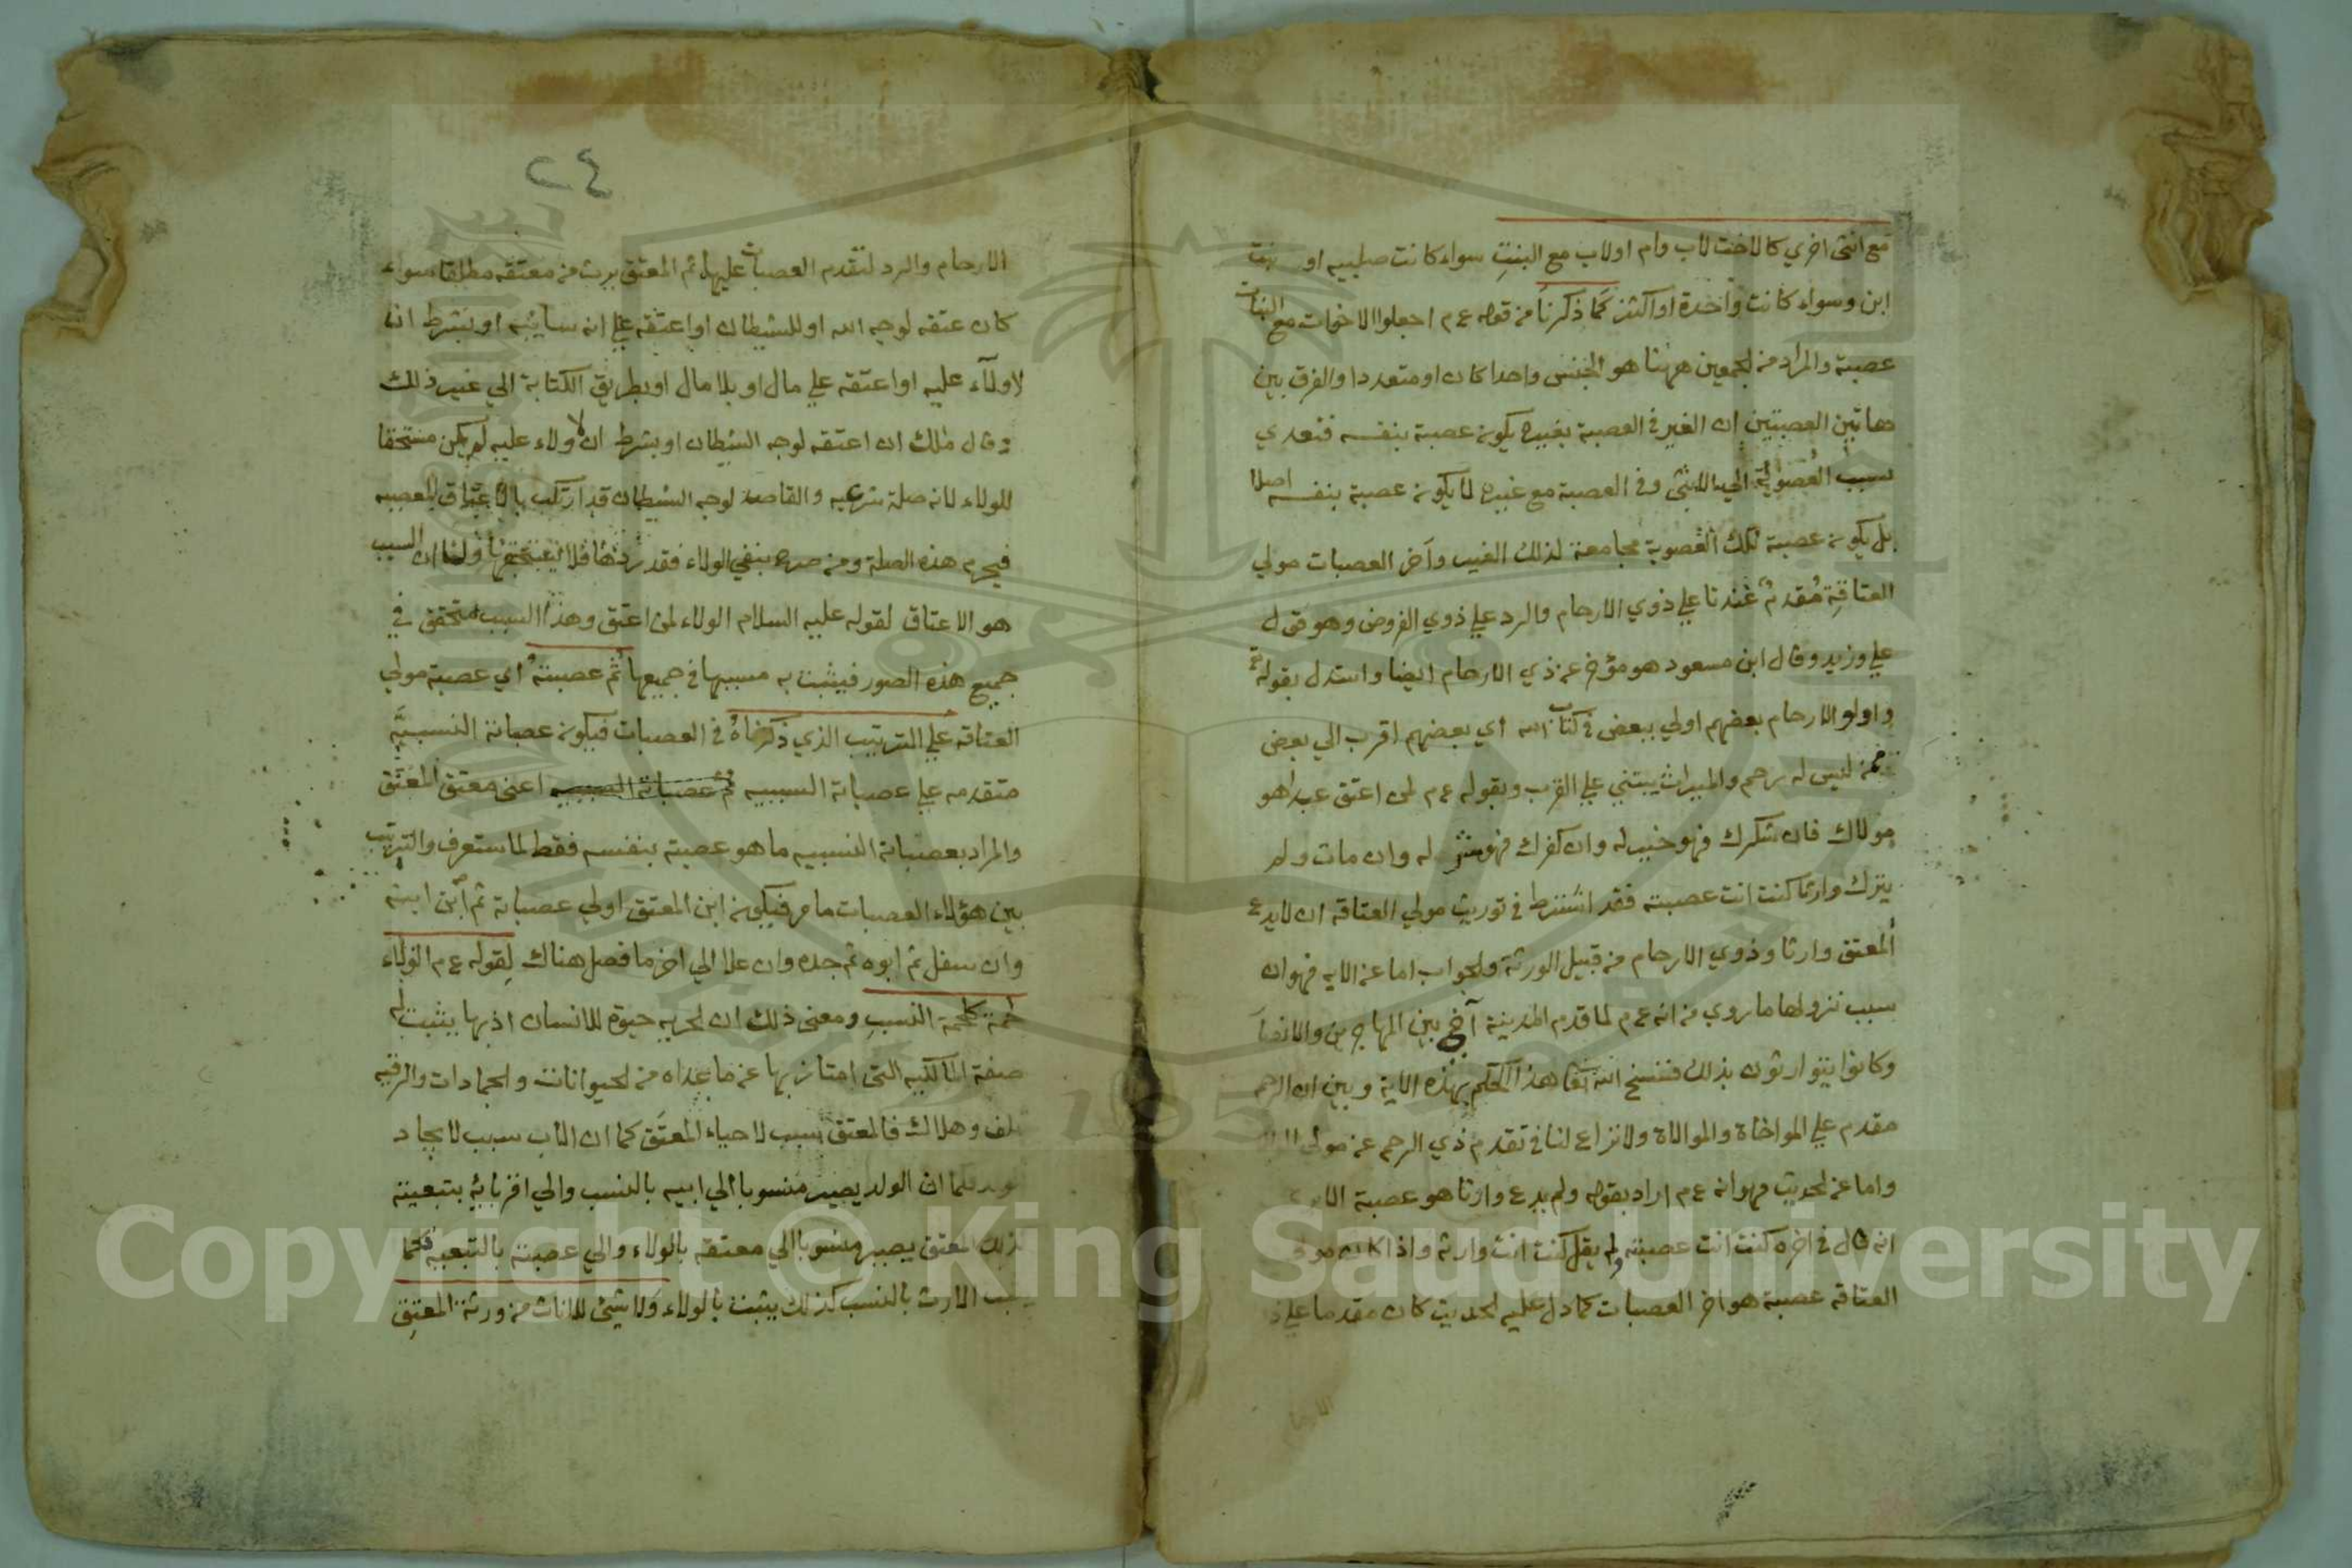 مع انثي اخري كالاخت لاب وام او لاب مع البنت سواء كانت صلبيه او بنت
ابن وسواء كانت واحدة او اكثر كما ذكرنا من قوله ع م اجعلوا الاخوات مع البنات
عصبة والمراد من الجمعين ههنا هو الجنس واحدا كان او متعددا والفرق بين
هاتين العصبتين ان الغير في العصبة بغيره يكون عصبة بنفسه فتعدي
بسبب العصوبة الي الانثي وفي العصبة مع غيره لا يكون عصبة بنفسه اصلا
بل يكون عصبة تلك العصوبة مجامعة لذلك الغير وآخر العصبات مولي
العتاقة مقدم عندنا علي ذوي الارحام والرد علي ذوي الفروض وهو قول
علي وزيد وقال ابن مسعود هو مؤخر عن ذي الارحام ايضا واستدل بقوله تع
واولو الارحام بعضهم اولي ببعض في كتاب الله أي بعضهم اقرب الي بعض
ممن ليس له رحم والميراث يبتني علي القرب وبقوله ع م لمن اعتق عبدا هو
مولاك فان شكرك فهو خير له وان كفرك فهو شر له وان مات ولم
يترك وارثا كنت انت عصبته فقد اشترط في توريث مولي العتاقه ان لا يدع
المعتق وارثا وذوي الارحام من قبيل الورثة والجواب اما عن الايه فهو ان
سبب نزولها ما روي من انه ع م لما قدم المدينة آخي بين المهاجرين والانصار
وكانوا يتوارثون بذلك فنسخ الله تعا هذا الحكم بهذه الاية وبين ان الرحم
مقدم علي المواخاة والموالاة ولا نزاع لنا في تقدم ذي الرحم عن مولي
واما عن الحديث فهو انه ع م اراد بقوله ولم يدع وارثا هو عصبة
انه قال في اخره كنت انت عصبته ولم يقل كنت انت وارثه واذا كان مولي
العتاقه عصبة هو اخر العصبات كما دل عليه الحديث كان مقدما علي
٢٤
الارحام والرد لتقدم العصبات عليها ثم المعتق يرث من معتقه مطلقا سواء
كان عتقه لوجه الله او للشيطان او اعتقه علي انه سائبه او بشرط ان
لا ولآء عليه او اعتقه علي مال او بلا مال او بطريق الكتابة الي غير ذلك
وقال ملك ان اعتقه لوجه الشيطان او بشرط ان لا ولاء عليه لم يكن مستحقا
للولاء لانه صلة شرعيه والقاصد لوجه الشيطان قد ارتكب بالاعتاق المعصيه
فيحرم هذه الصلة ومن صرح بنفي الولاء فقد ردها فلا يستحقها ولنا ان السبب
هو الاعتاق لقوله عليه السلام الولاء لمن اعتق وهذا السبب متحقق في
جميع هذه الصور فيثبت به مسببها في جميعها ثم عصبته أي عصبة مولي
العتاقه علي الترتيب الذي ذكرناه في العصبات فيكون عصباته النسبيَّه
متقدمه علي عصباته السببيه ثم عصباته السببيه اعني معتق المعتق
والمراد بعصباته النسبيه ما هو عصبة بنفسه فقط لما ستعرف والترتيب
بين هؤلاء العصبات ما مر فيكون ابن المعتق اولي عصباته ثم ابن ابنه
وان سفل ثم ابوه ثم جده وان علا الي اخر ما فصل هناك لقوله ع م الولاء
لحمة كلحمة النسب ومعني ذلك ان الحريه حيوة للانسان اذ بها يثبت له
صفة المالكيه التي امتاز بها عن ما عداه من الحيوانات والجمادات والرقيه
تلف وهلاك فالمعتق سبب لاحياء المعتَق كما ان الاب سبب لايجاد
الولد فكما ان الولد يصير منسوبا الي ابيه بالنسب والي اقربائه بتبعيته
كذلك المعتق يصير منسوبا الي معتقه بالولاء والي عصبته بالتبعيه فكما
يثبت الارث بالنسب كذلك يثبت بالولاء ولا شيئ للاناث من ورثة المعتِق
Copyright © King Saud University